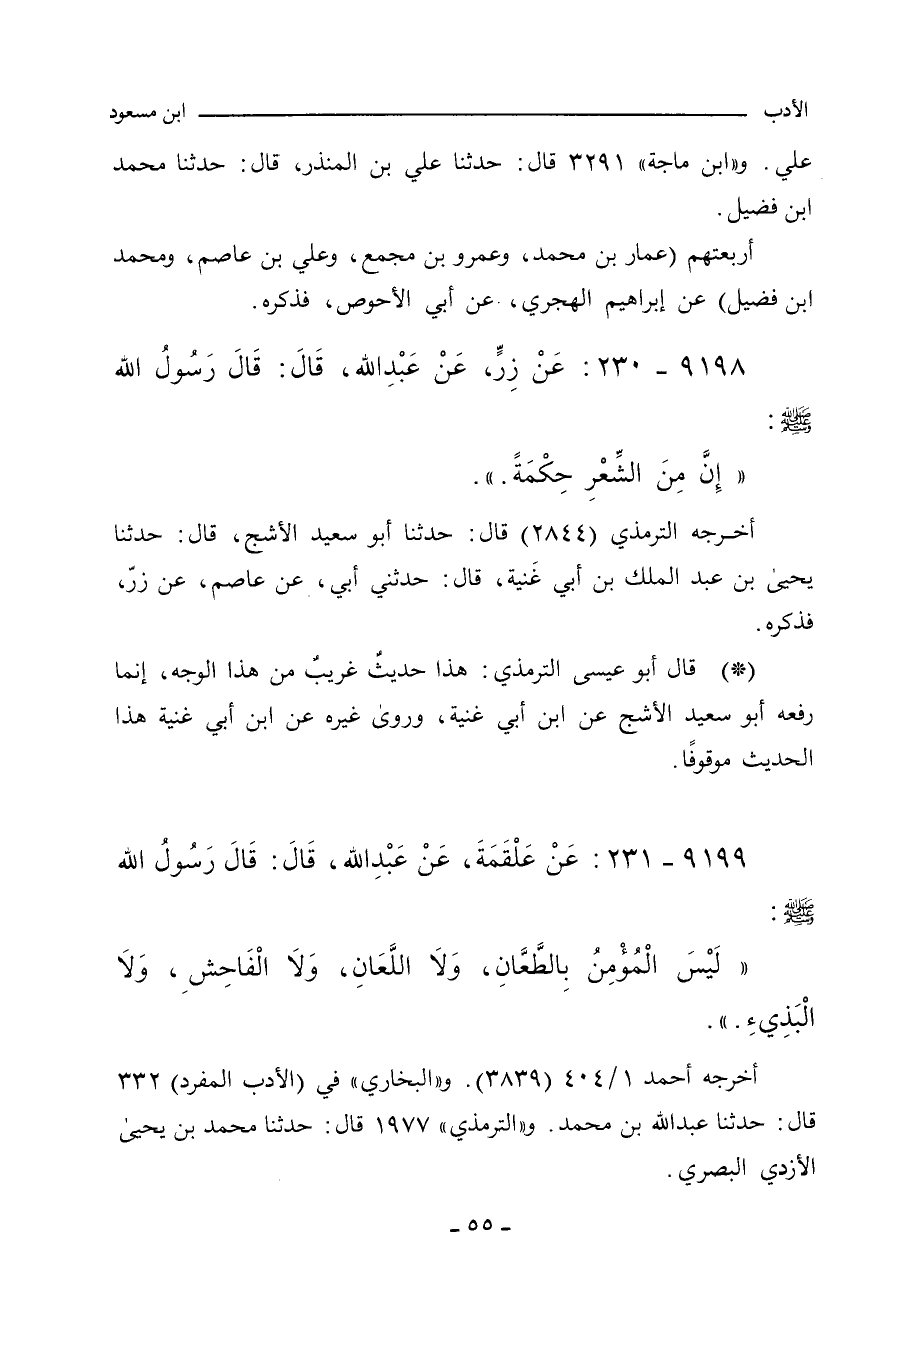 الأدب ــــــــــــــــــــ ابن مسعود
علي. و«ابن ماجة» ٣٢٩١ قال: حدثنا علي بن المنذر، قال: حدثنا محمد
ابن فضيل.
أربعتهم (عمار بن محمد، وعمرو بن مجمع، وعلي بن عاصم، ومحمد
ابن فضيل) عن إبراهيم الهجري، عن أبي الأحوص، فذكره.
٩١٩٨ - ٢٣٠: عَنْ زِرٍّ، عَنْ عَبْدِالله، قَالَ: قَالَ رَسُولُ الله
ﷺ:
« إِنَّ مِنَ الشِّعْرِ حِكْمَةً. ».
أخـرجه الترمذي (٢٨٤٤) قال: حدثنا أبو سعيد الأشج، قال: حدثنا
يحيىٰ بن عبد الملك بن أبي غَنية، قال: حدثني أبي، عن عاصم، عن زرّ،
فذكره.
(*) قال أبو عيسى الترمذي: هذا حديثٌ غريبٌ من هذا الوجه، إنما
رفعه أبو سعيد الأشج عن ابن أبي غنية، وروىٰ غيره عن ابن أبي غنية هذا
الحديث موقوفًا.
٩١٩٩ - ٢٣١: عَنْ عَلْقَمَةَ، عَنْ عَبْدِالله، قَالَ: قَالَ رَسُولُ الله
ﷺ:
« لَيْسَ الْمُؤْمِنُ بِالطَّعَّانِ، وَلَا اللَّعَانِ، وَلَا الْفَاحِشِ، وَلَا
الْبَذِيءِ. ».
أخرجه أحمد ٤٠٤/١ (٣٨٣٩). و«البخاري» في (الأدب المفرد) ٣٣٢
قال: حدثنا عبدالله بن محمد. و«الترمذي» ١٩٧٧ قال: حدثنا محمد بن يحيىٰ
الأزدي البصري.
- ٥٥ -